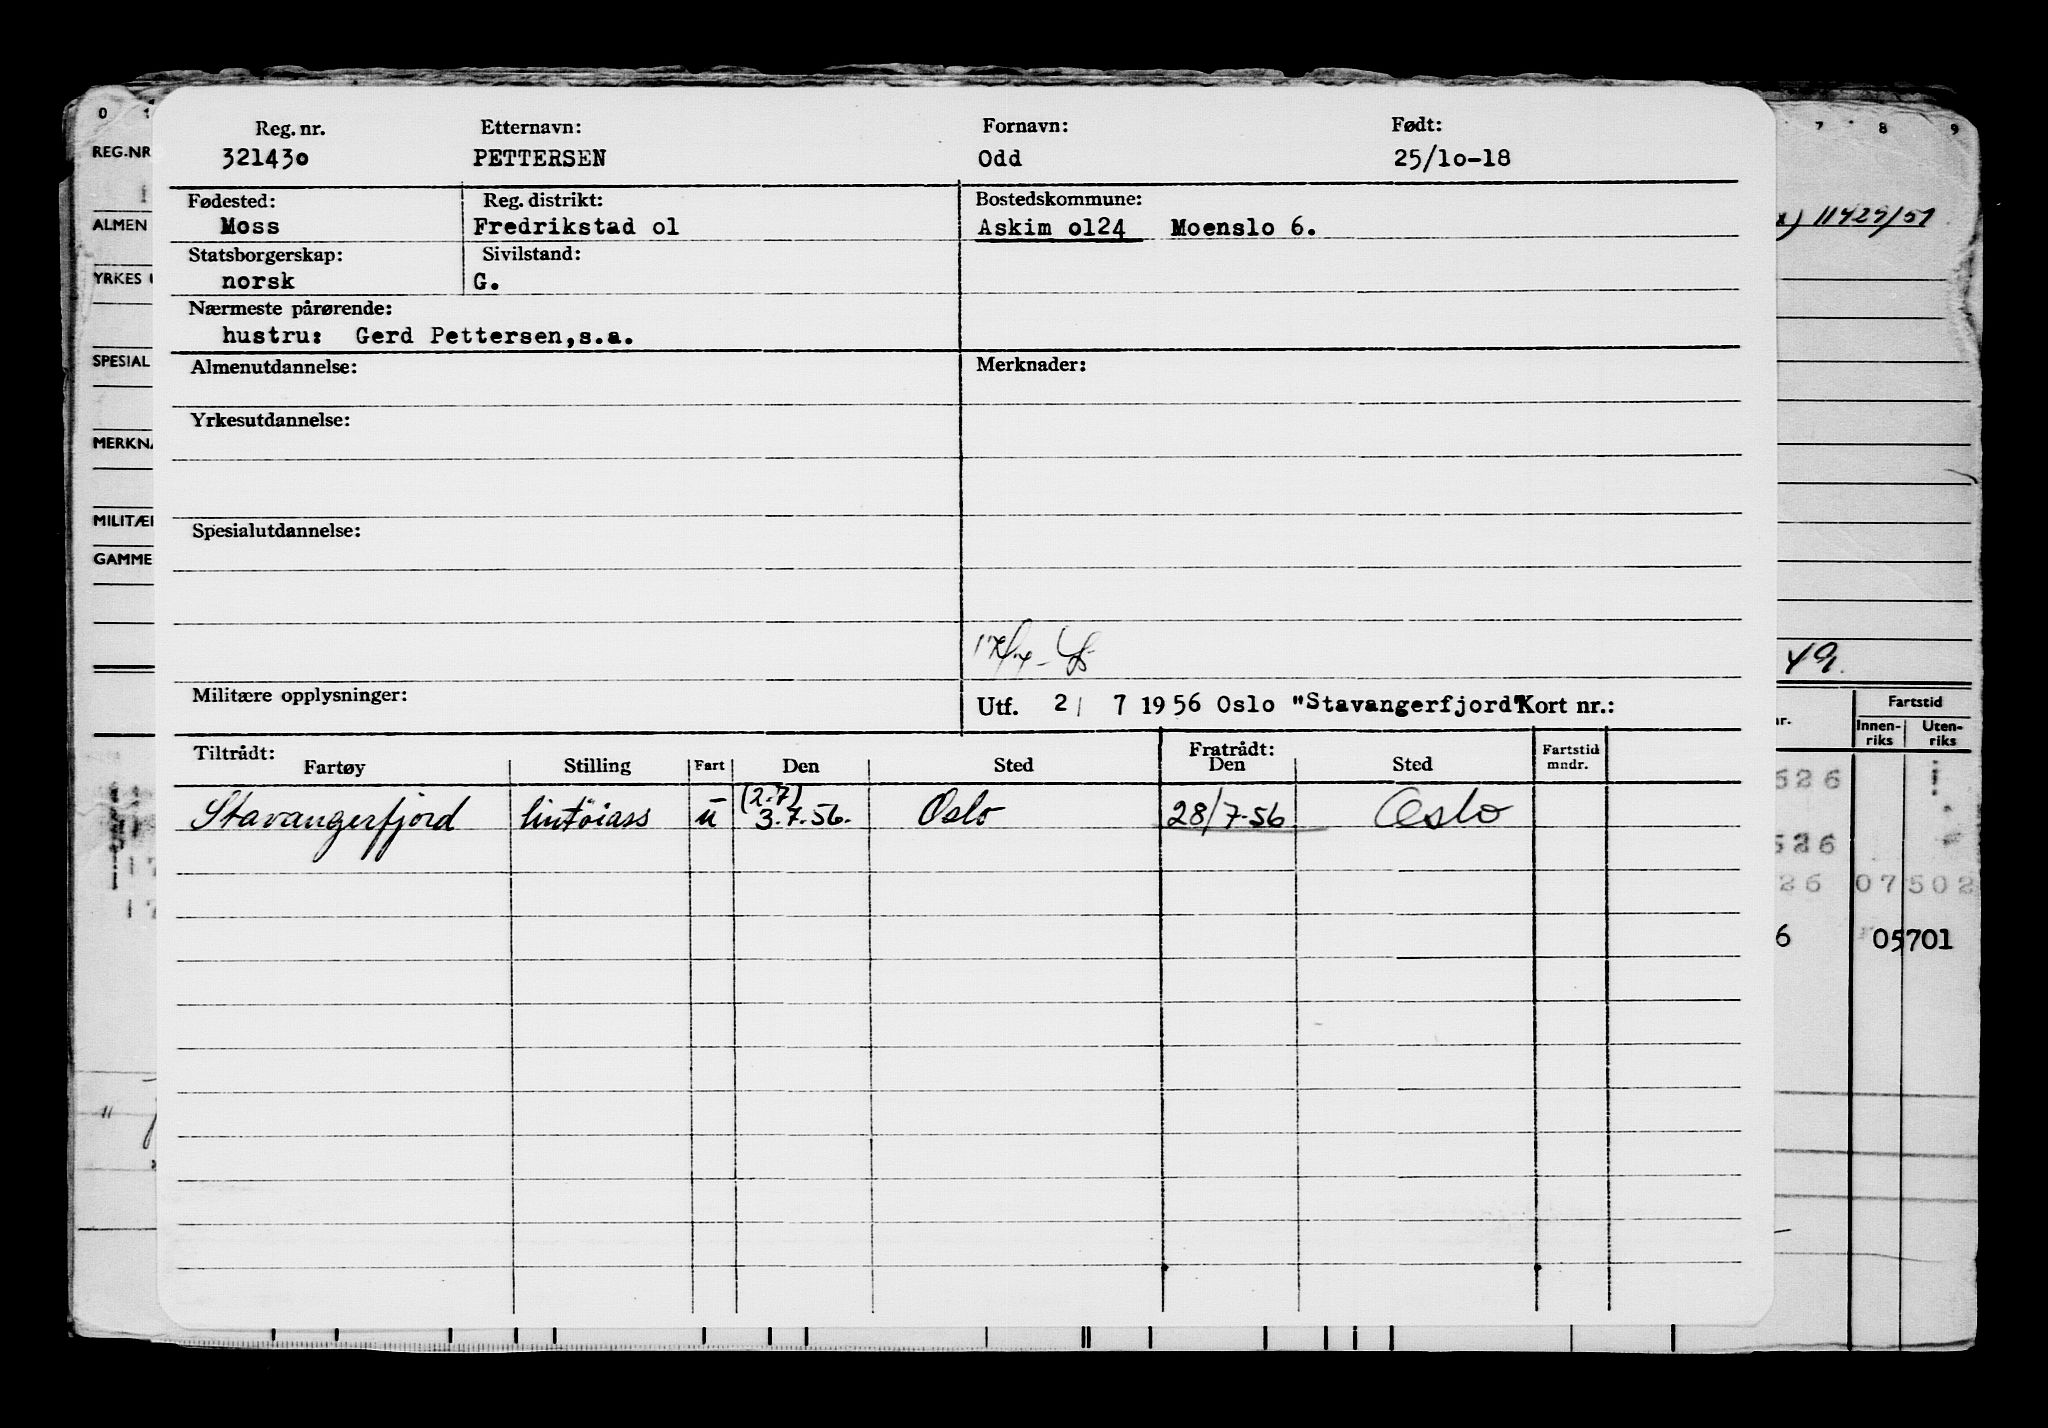 0 1 7 8 9
Reg. nr. Etternavn: Fornavn: Født:
REG.NR 32143o PETTERSEN Odd 25/1o-18
Fødested: Reg. distrikt: Bostedskommune:
ALMEN Moss Fredrikstad ol Askim ol24 Moenslo 6. 11427/51
Statsborgerskap: Sivilstand:
YRKES norsk G.
Nærmeste pårørende:
hustru: Gerd Pettersen,s.a.
SPESIAL Almenutdannelse: Merknader:
Yrkesutdannelse:
MERKNA
MILITÆR Spesialutdannelse:
GAMME
49.
Militære opplysninger: Utf. 2/ 7 1956 Oslo "Stavangerfjord" Kort nr.: Fartstid
nr. Innen-riks Uten-riks
Tiltrådt: Fratrådt: Fartstid
Fartøy Stilling Fart Den Sted Den Sted mndr.
526
(2.7)
Stavangerfjord lintøiass u 3.7.56. Oslo 28/7-56 Oslo
17 526
17 26 07502
6 05701
"